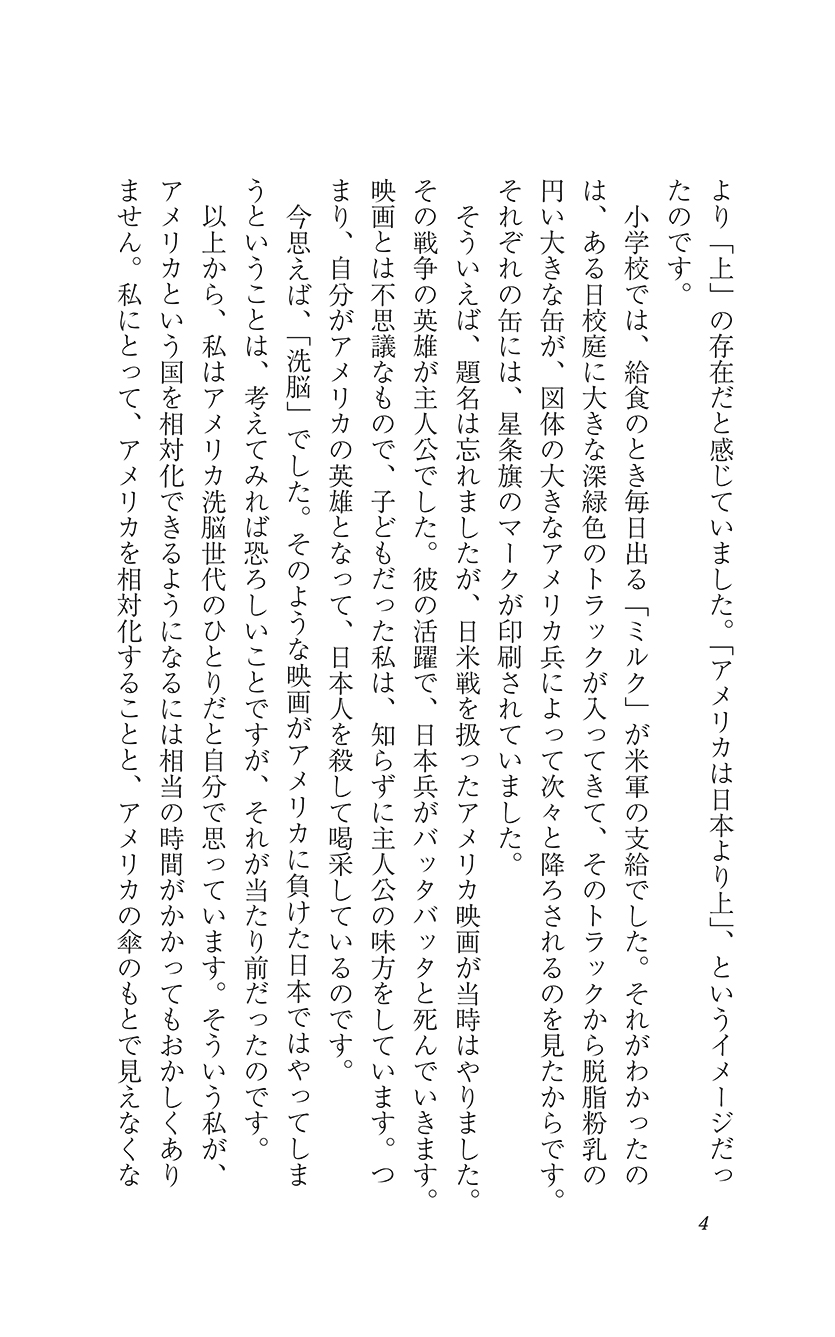 より「上」の存在だと感じていました。「アメリカは日本より上」、というイメージだっ
たのです。
小学校では、給食のとき毎日出る「ミルク」が米軍の支給でした。それがわかったの
は、ある日校庭に大きな深緑色のトラックが入ってきて、そのトラックから脱脂粉乳の
円い大きな缶が、図体の大きなアメリカ兵によって次々と降ろされるのを見たからです。
それぞれの缶には、星条旗のマークが印刷されていました。
そういえば、題名は忘れましたが、日米戦を扱ったアメリカ映画が当時はやりました。
その戦争の英雄が主人公でした。彼の活躍で、日本兵がバッタバッタと死んでいきます。
映画とは不思議なもので、子どもだった私は、知らずに主人公の味方をしています。つ
まり、自分がアメリカの英雄となって、日本人を殺して喝采しているのです。
今思えば、「洗脳」でした。そのような映画がアメリカに負けた日本ではやってしま
うということは、考えてみれば恐ろしいことですが、それが当たり前だったのです。
以上から、私はアメリカ洗脳世代のひとりだと自分で思っています。そういう私が、
アメリカという国を相対化できるようになるには相当の時間がかかってもおかしくあり
ません。私にとって、アメリカを相対化することと、アメリカの傘のもとで見えなくな
4